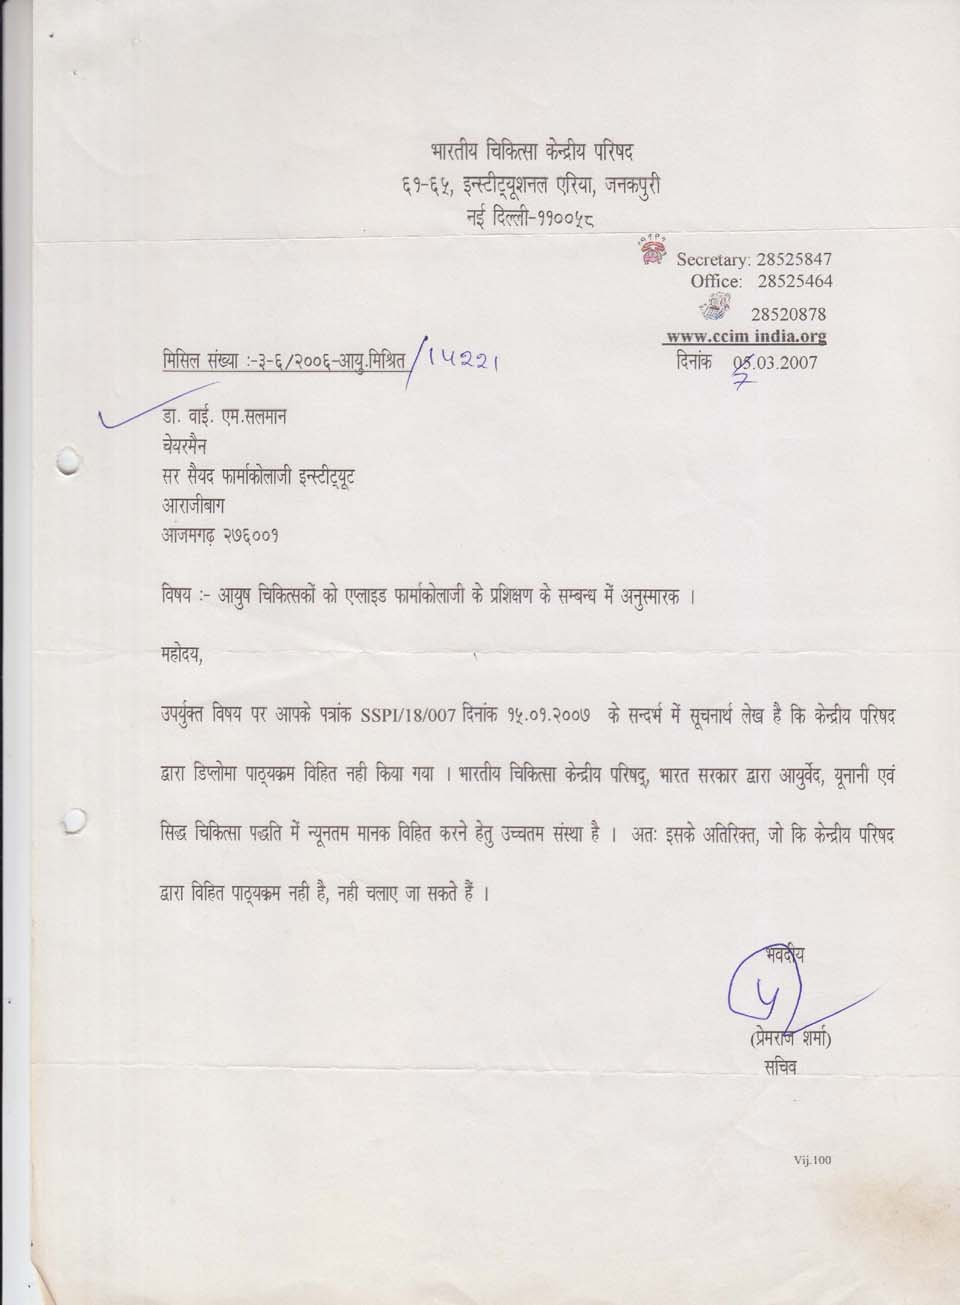 भारतीय चिकित्सा केन्द्रीय परिषद
६१-६५, इन्स्टीट्यूशनल एरिया, जनकपुरी
नई दिल्ली-११००५८
Secretary: 28525847
Office: 28525464
28520878
www.ccim india.org
मिसिल संख्या :-३-६/२००६-आयु.मिश्रित/14221
दिनांक 7.03.2007
डा. वाई. एम.सलमान
चेयरमैन
सर सैयद फार्माकोलाजी इन्स्टीट्यूट
आराजीबाग
आजमगढ़ २७६००१
विषय :- आयुष चिकित्सकों को एप्लाइड फार्माकोलाजी के प्रशिक्षण के सम्बन्ध में अनुस्मारक ।
महोदय,
उपर्युक्त विषय पर आपके पत्रांक SSPI/18/007 दिनांक १५.०१.२००७ के सन्दर्भ में सूचनार्थ लेख है कि केन्द्रीय परिषद
द्वारा डिप्लोमा पाठ्यक्रम विहित नही किया गया । भारतीय चिकित्सा केन्द्रीय परिषद्, भारत सरकार द्वारा आयुर्वेद, यूनानी एवं
सिद्ध चिकित्सा पद्धति में न्यूनतम मानक विहित करने हेतु उच्चतम संस्था है । अतः इसके अतिरिक्त, जो कि केन्द्रीय परिषद
द्वारा विहित पाठ्यक्रम नही है, नही चलाए जा सकते हैं ।
भवदीय
(प्रेमराज शर्मा)
सचिव
Vij.100